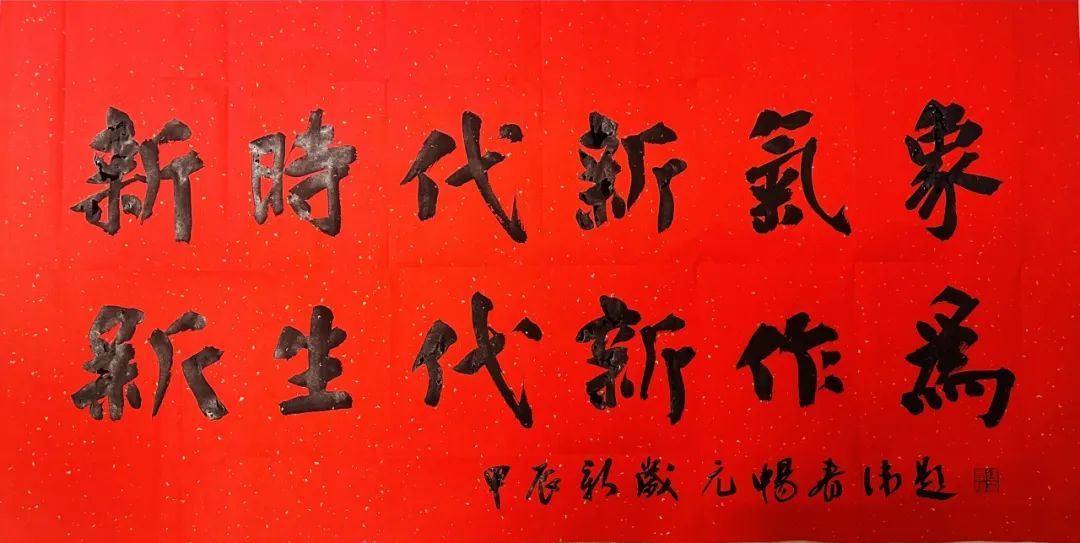 新時代新氣象
新生代新作爲
甲辰新歲元暢春沛題